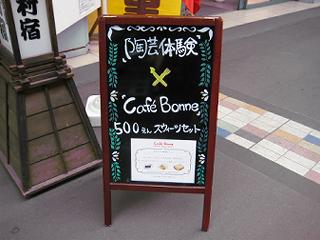 村宿
陶芸体験
×
Café Bonne
500えん スウィーツセット
Café Bonne